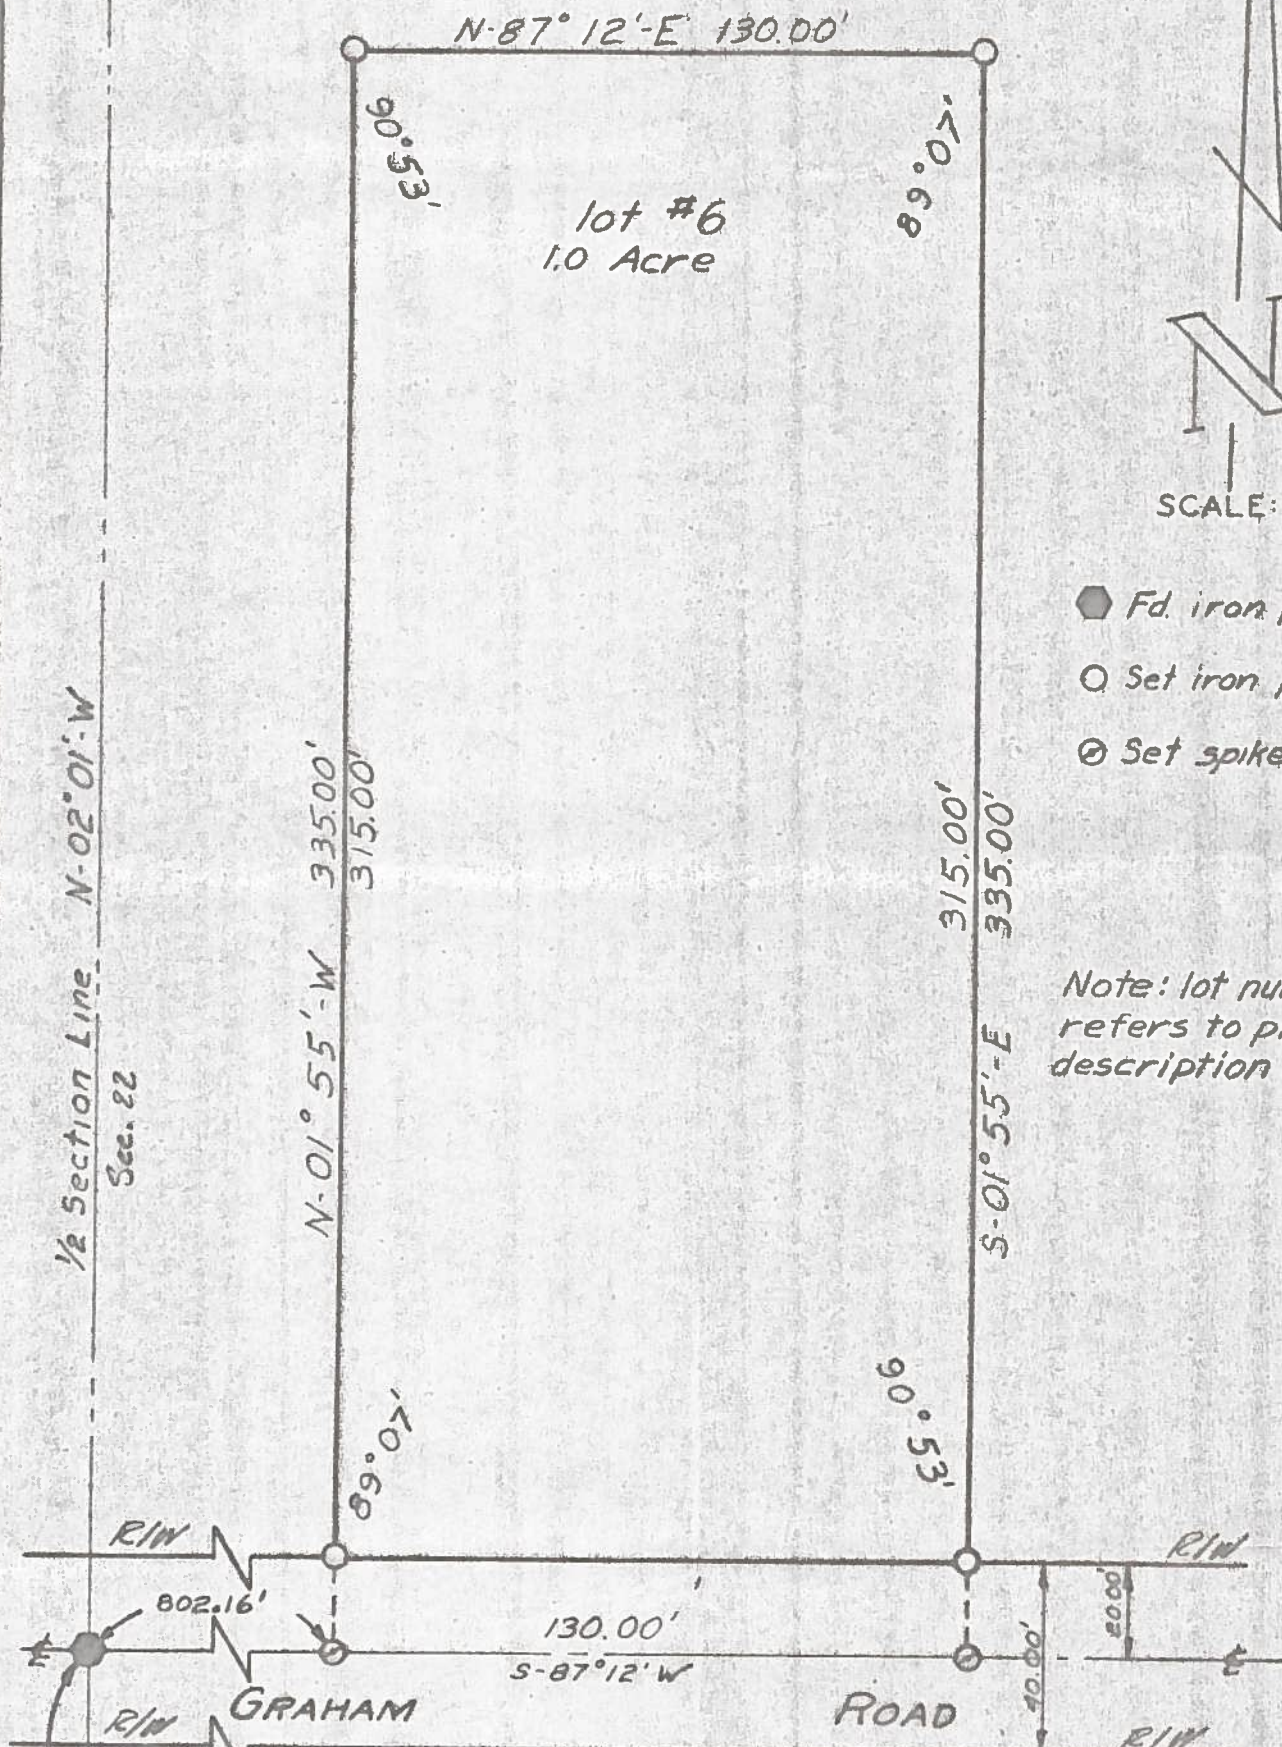 N-87° 12'-E 130.00'
90° 53'
89° 07'
lot #6
1.0 Acre
SCALE:
Fd. iron
Set iron
Set spike
½ Section Line N-02° 01'-W
Sec. 22
N-01° 55'-W 335.00'
315.00'
315.00'
S-01° 55'-E 335.00'
Note: lot
refers to
description
89° 07'
90° 53'
R/W
R/W
802.16'
130.00'
S-87° 12' W
20.00'
40.00'
GRAHAM ROAD
R/W
R/W
N